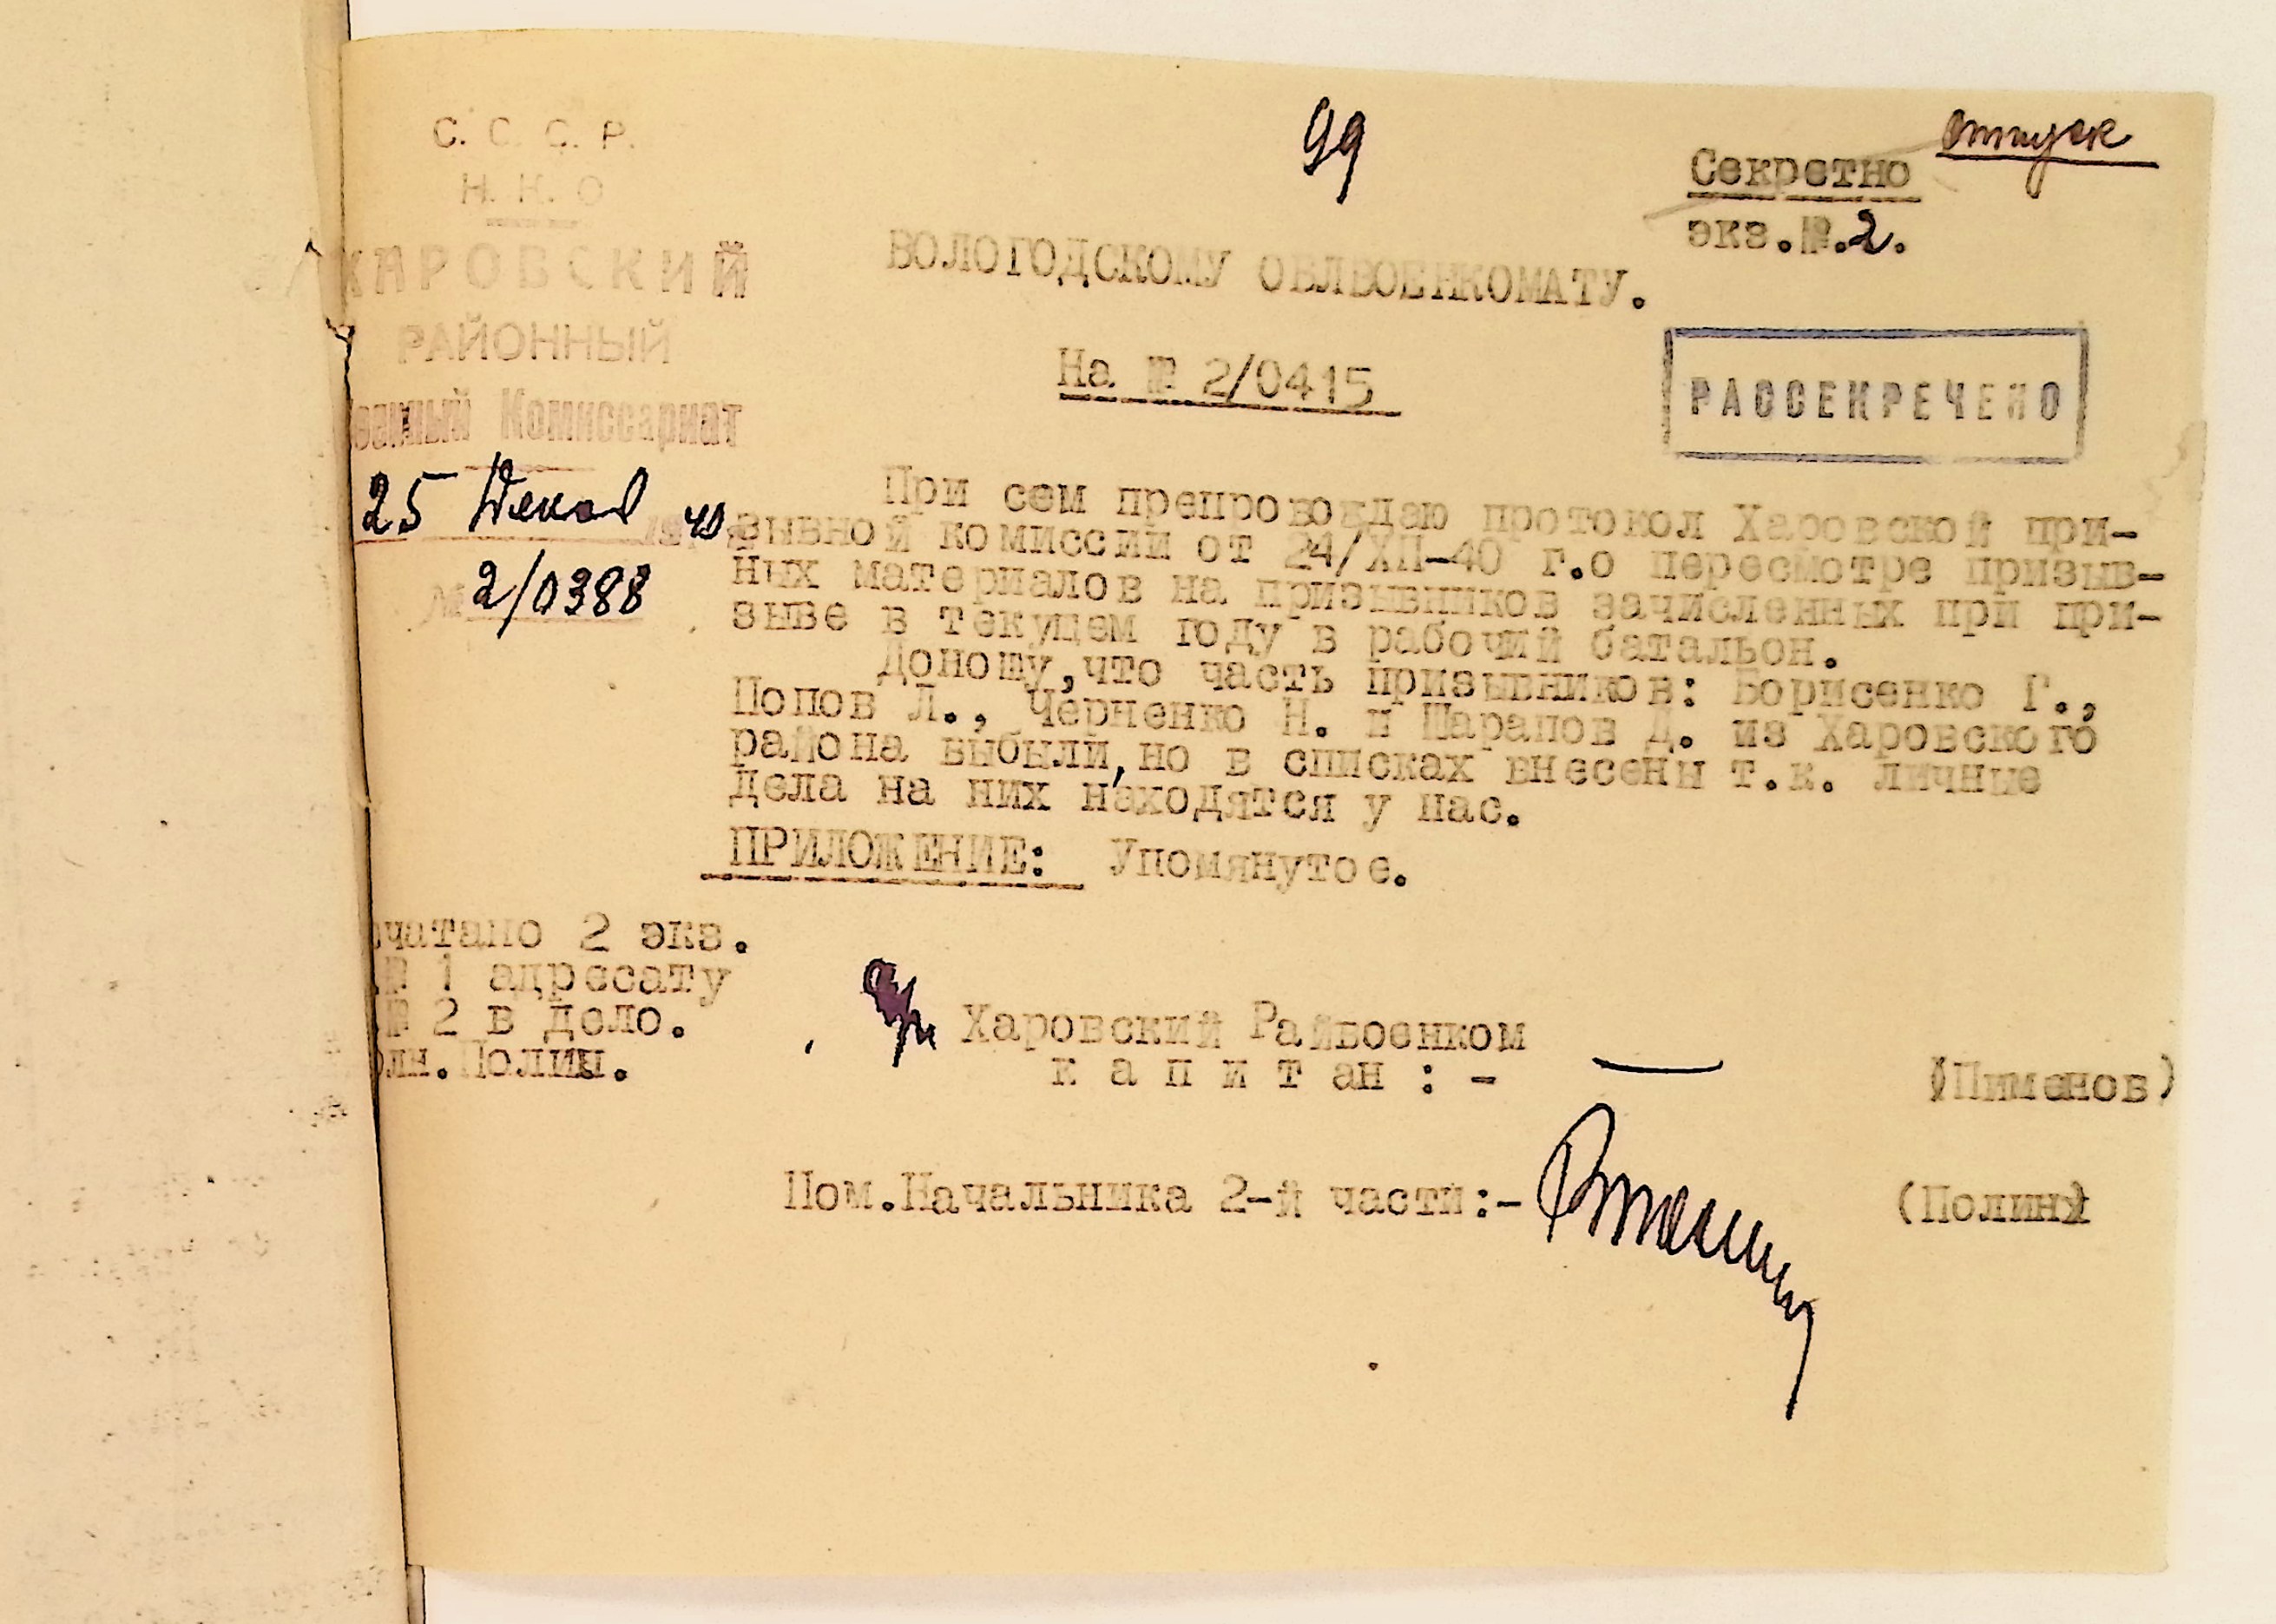 99
отпуск
Секретно
экз.№.2.
С. С. С. Р.
Н. К. О
ХАРОВСКИЙ
РАЙОННЫЙ
оенный Комиссариат
25 Декаб 1940
№ 2/0388
ВОЛОГОДСКОМУ ОБЛВОЕНКОМАТУ.
На № 2/0415
РАССЕКРЕЧЕНО
При сем препровождаю протокол Харовской при-
зывной комиссии от 24/XII-40 г.о пересмотре призыв-
ных материалов на призывников зачисленных при при-
зыве в текущем году в рабочий батальон.
Доношу,что часть призывников: Борисенко Г.,
Попов Л., Черненко Н. и Шарапов Д. из Харовского
района выбыли,но в списках внесены т.к. личные
дела на них находятся у нас.
ПРИЛОЖЕНИЕ: Упомянутое.
чатано 2 экз.
№ 1 адресату
№ 2 в дело.
олн.Полин.
Харовский Райвоенком
капитан :- (Пименов)
Пом.Начальника 2-й части:- (Полин)